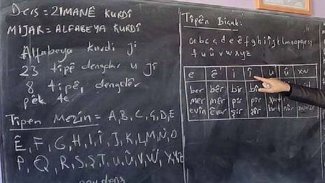 Ders = ZIMANÊ KURDÎ
MIJAR = ALFABEYA KURDÎ
Alfabeya kurdî ji
23 tipê dengdar û ji
8 tipê dengdêr
pêk tê.
Tipên Mezin = A, B, C, Ç, D, E
Ê, F, G, H, I, Î, J, K, L, M, N, O
P, Q, R, S, Ş, T, U, Û, V, W, X, Y, Z
Tipên Biçûk:
a b c ç d e ê f g h i î j k l m n o p q r s
ş t u û v w x y z
e ê i î u û
ber bêr bir
mer mêr pir pîr
evîn êvar